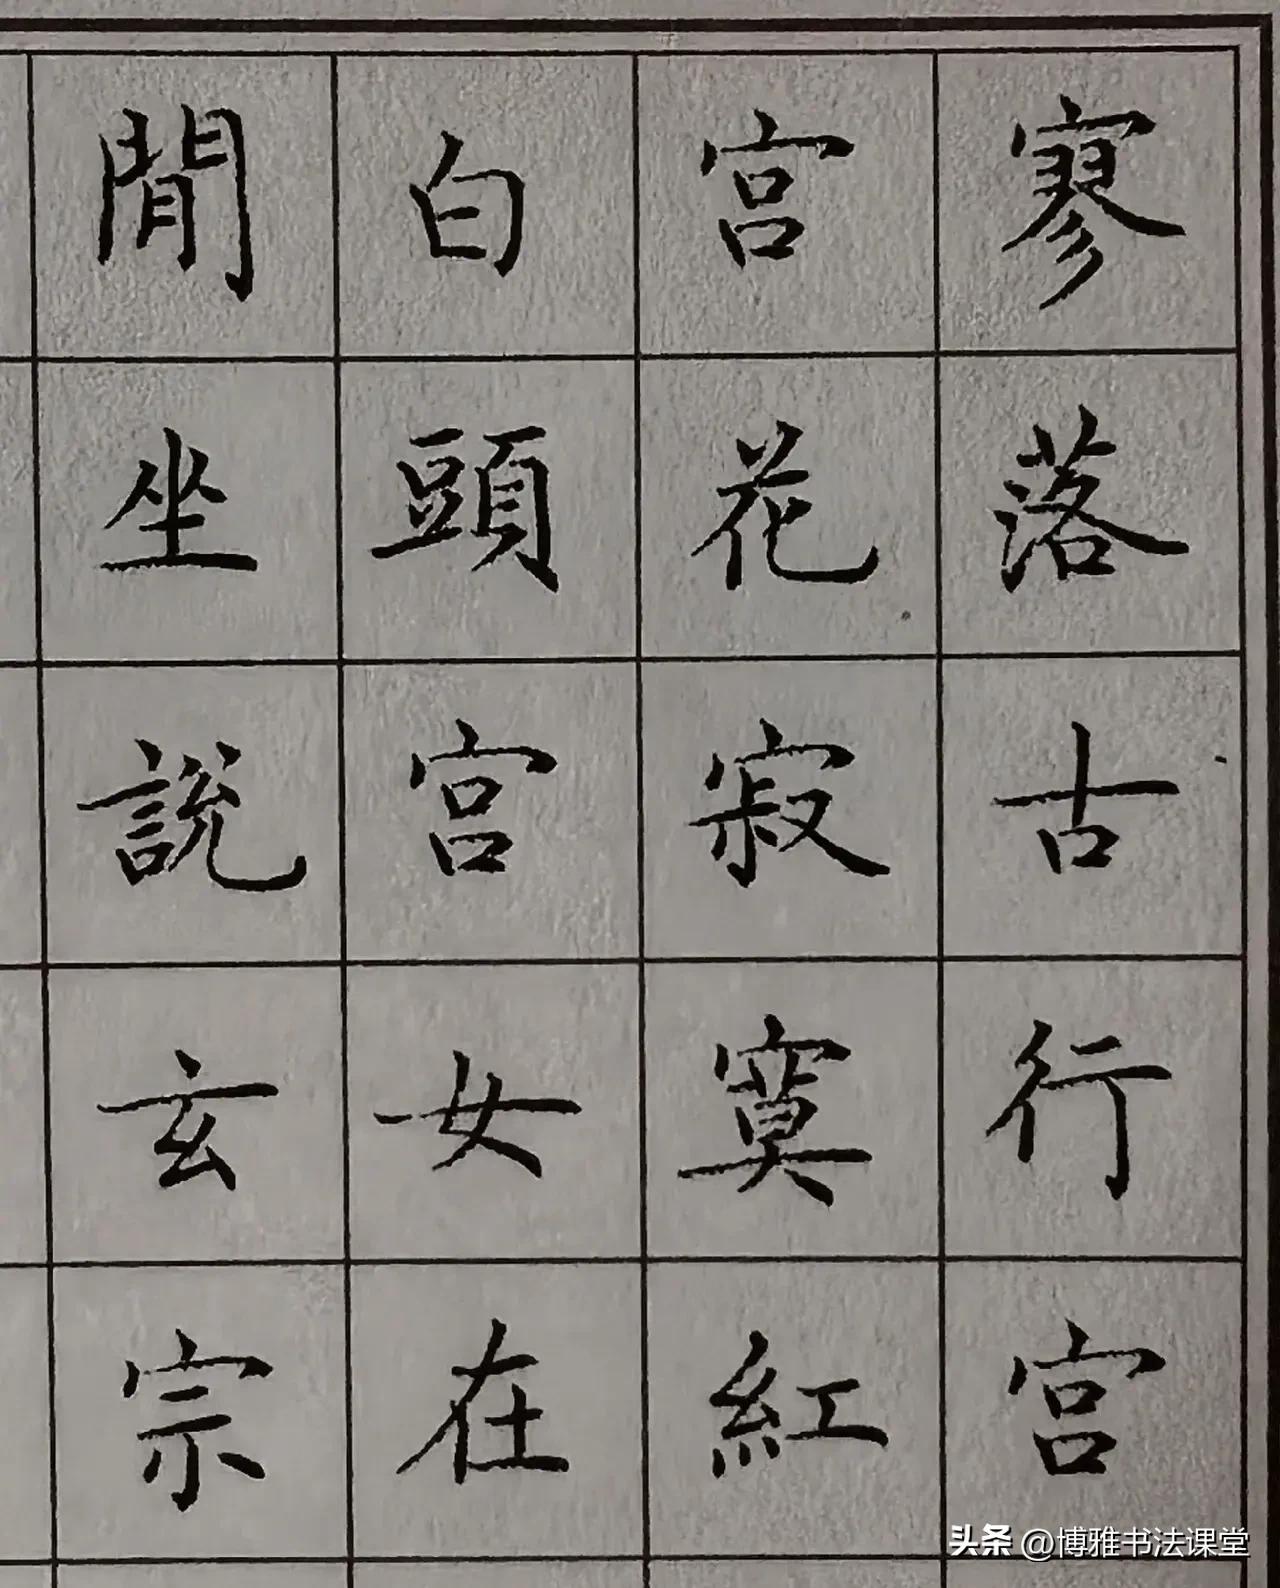 寥落古行宫
宫花寂寞紅
白頭宫女在
閒坐說玄宗
头条 @博雅书法课堂